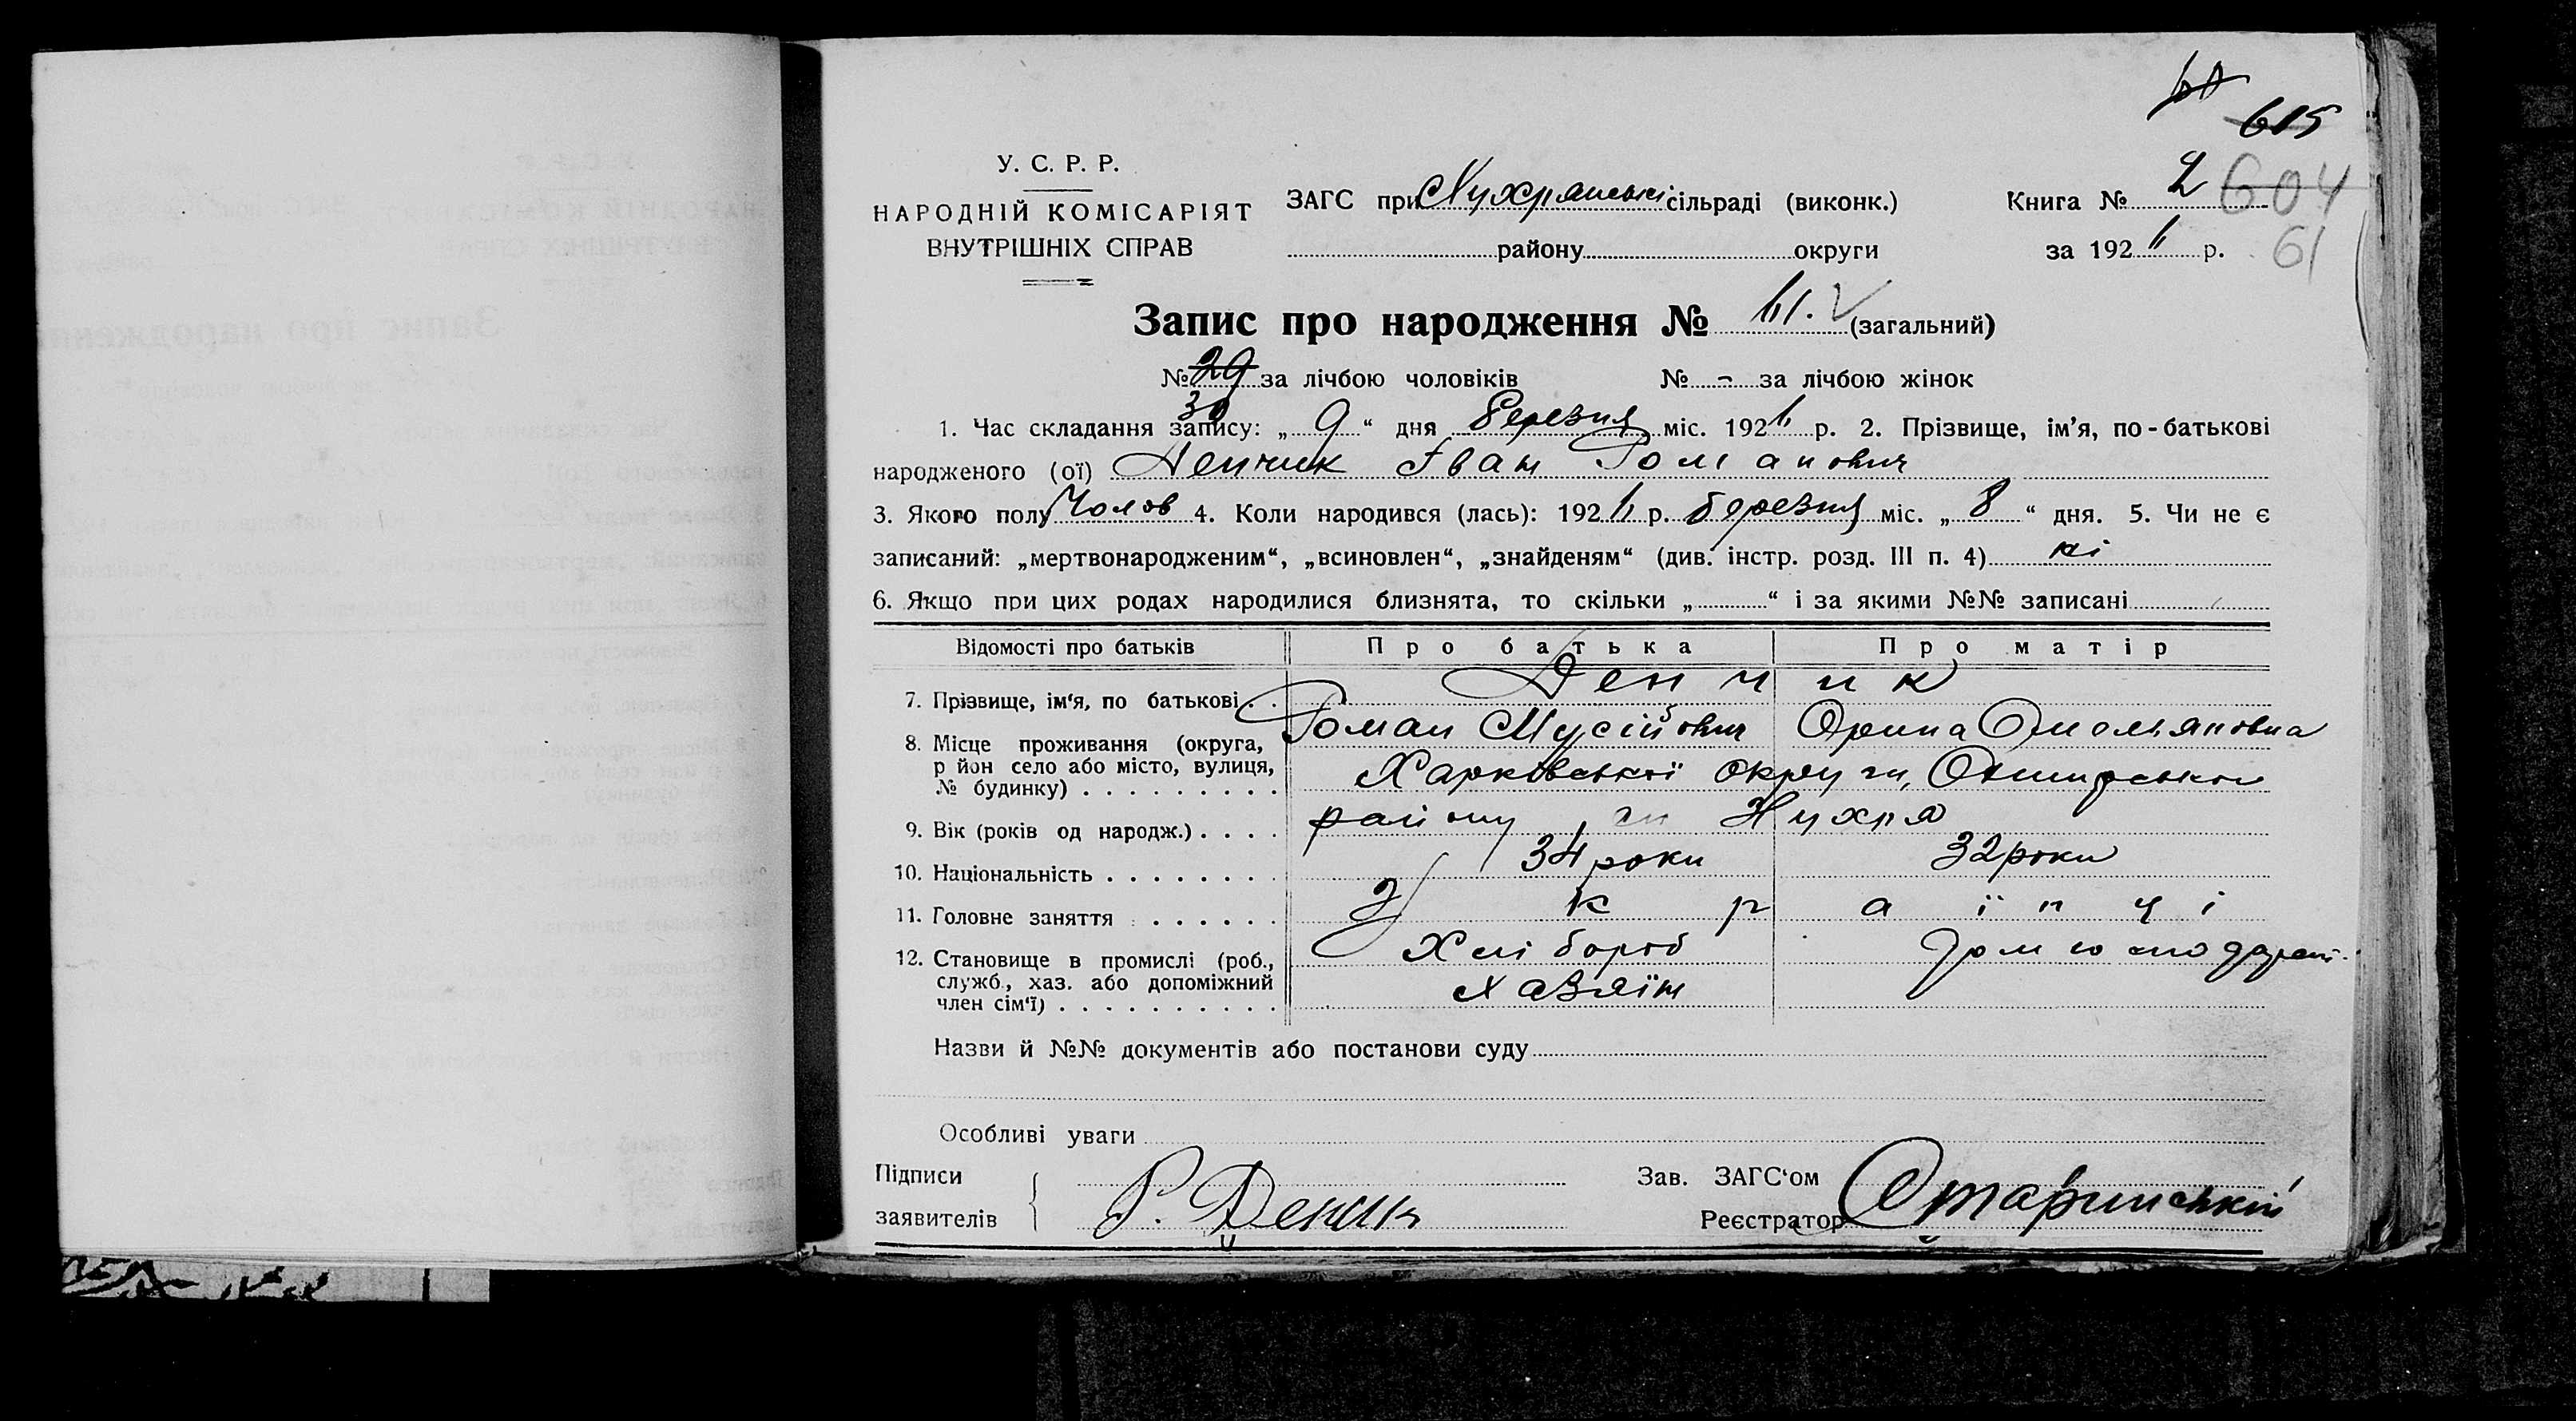 615
У. С. Р. Р.
НАРОДНІЙ КОМІСАРІЯТ
ВНУТРІШНІХ СПРАВ
ЗАГС при сільраді (виконк.)
району округи
Книга № 2 604
за 1926 р. 61
Запис про народження № 61. (загальний)
№ 29 за лічбою чоловіків № - за лічбою жінок
30
1. Час складання запису: „ 9 “ дня березня міс. 1926 р. 2. Прізвище, ім’я, по-батькові
народженого (ої) Денчик Іван Романович
3. Якого полу Чолов 4. Коли народився (лась): 1926 р. березня міс. „ 8 “ дня. 5. Чи не є
записаний: „мертвонародженим“, „всиновлен“, „знайденям“ (див. інстр. розд. III п. 4) ні
6. Якщо при цих родах народилися близнята, то скільки „ “ і за якими №№ записані
Відомості про батьків Про батька Про матір
7. Прізвище, ім‘я, по батькові . . Денчик
Роман Мусійович Орина Омеляновна
8. Місце проживання (округа,
р йон село або місто, вулиця,
№ будинку) . . . . . . . . . Харківської округи,
району
9. Вік (років од народж.) . . . . 34 роки 32 роки
10. Національність . . . . . . . . Українці
11. Головне заняття . . . . . . Хлібороб
12. Становище в промислі (роб.,
служб., хаз. або допоміжний
член сім‘ї) . . . . . . . . . . Хазяїн
Назви й №№ документів або постанови суду
Особливі уваги
Підписи
заявителів Р. Денчик
Зав. ЗАГС‘ом
Реєстратор